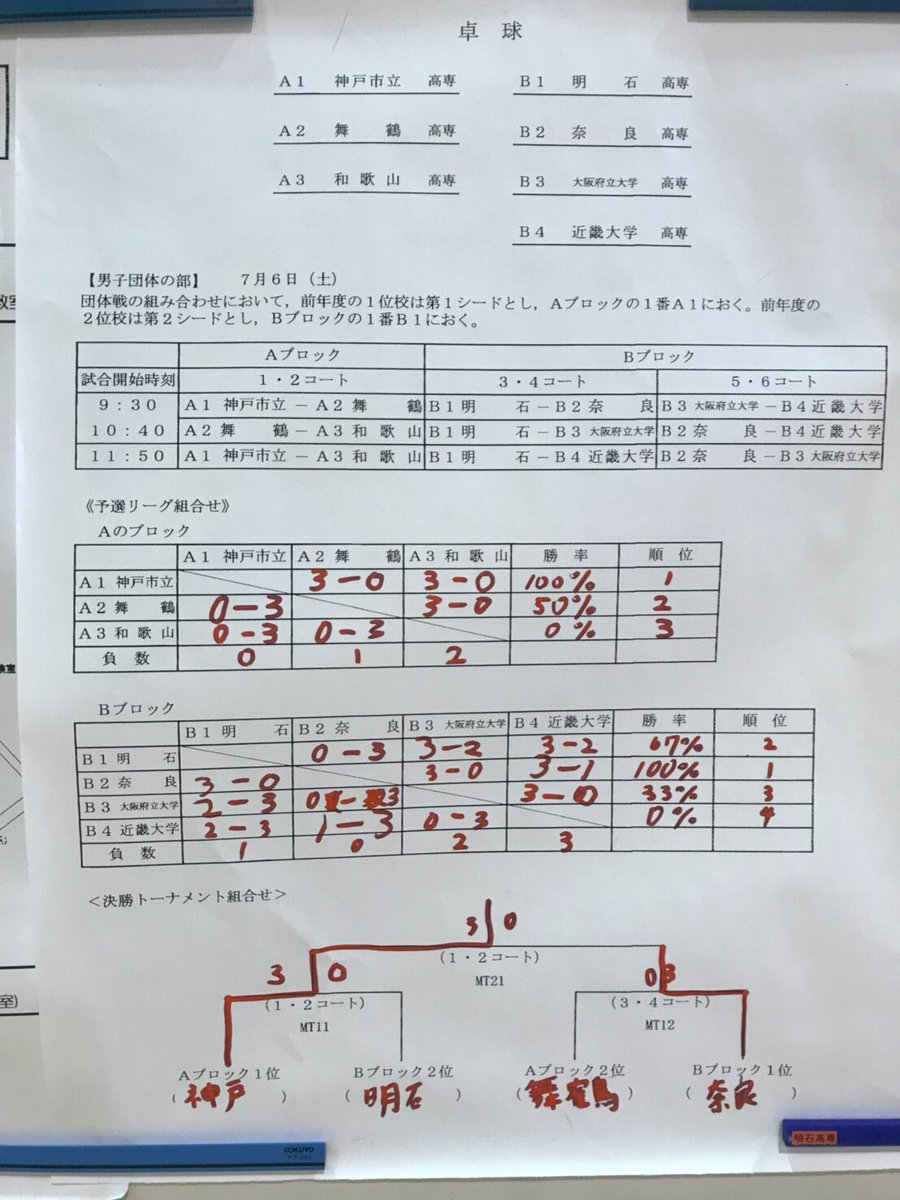 卓球
A1 神戸市立 高専 B1 明石 高専
A2 舞鶴 高専 B2 奈良 高専
A3 和歌山 高専 B3 大阪府立大学 高専
B4 近畿大学 高専
【男子団体の部】 7月6日(土)
団体戦の組み合わせにおいて,前年度の1位校は第1シードとし,Aブロックの1番A1におく。前年度の
2位校は第2シードとし,Bブロックの1番B1におく。
Aブロック Bブロック
試合開始時刻 1・2コート 3・4コート 5・6コート
9:30 A1 神戸市立-A2 舞鶴 B1 明石-B2 奈良 B3 大阪府立大学-B4 近畿大学
10:40 A2 舞鶴-A3 和歌山 B1 明石-B3 大阪府立大学 B2 奈良-B4 近畿大学
11:50 A1 神戸市立-A3 和歌山 B1 明石-B4 近畿大学 B2 奈良-B3 大阪府立大学
《予選リーグ組合せ》
Aのブロック
A1 神戸市立 A2 舞鶴 A3 和歌山 勝率 順位
A1 神戸市立 3-0 3-0 100% 1
A2 舞鶴 0-3 3-0 50% 2
A3 和歌山 0-3 0-3 0% 3
負数 0 1 2
Bブロック
B1 明石 B2 奈良 B3 大阪府立大学 B4 近畿大学 勝率 順位
B1 明石 0-3 3-2 3-2 67% 2
B2 奈良 3-0 3-0 3-1 100% 1
B3 大阪府立大学 2-3 0-3 3-0 33% 3
B4 近畿大学 2-3 1-3 0-3 0% 4
負数 1 0 2 3
<決勝トーナメント組合せ>
3 0
(1・2コート)
MT21
3 0 0 3
(1・2コート) (3・4コート)
MT11 MT12
Aブロック1位 Bブロック2位 Aブロック2位 Bブロック1位
(神戸) (明石) (舞鶴) (奈良)
KOKUYO
明石高専